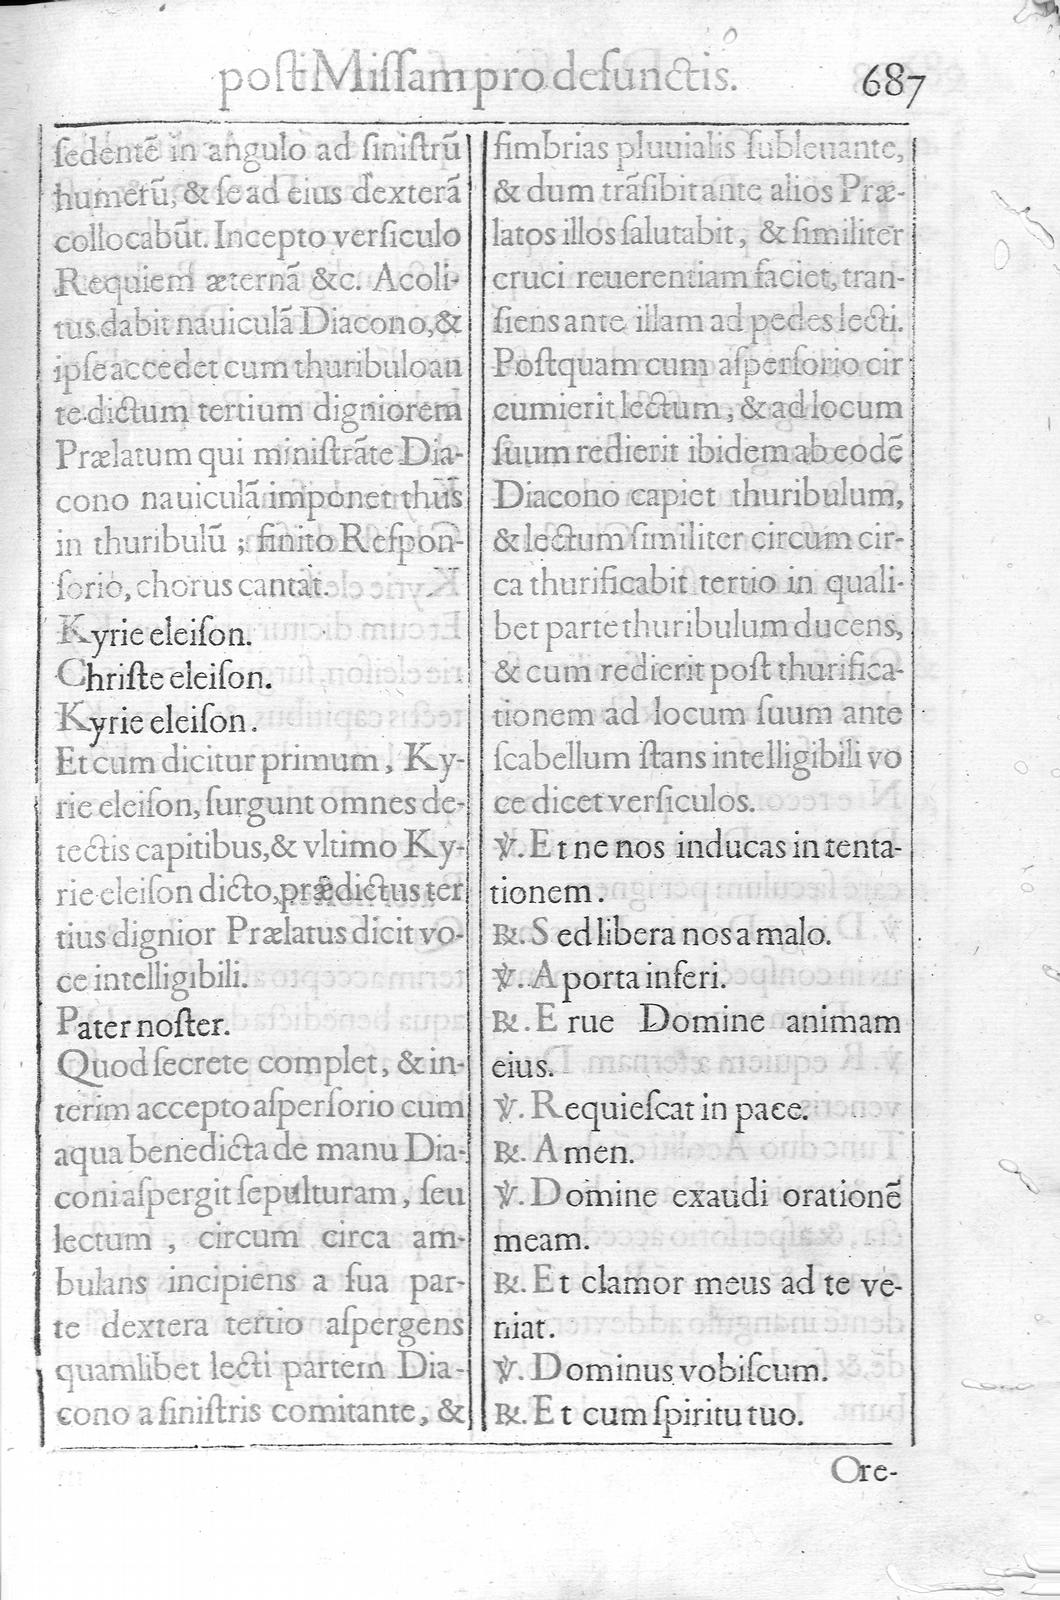 post Missam pro defunctis.
687
sedentē in angulo ad sinistrū
humerū, & se ad eius dexterā
collocabūt. Incepto versiculo
Requiem æternā &c. Acoli-
tus dabit nauiculā Diacono, &
ipse accedet cum thuribulo an
te dictum tertium digniorem
Prælatum qui ministrāte Dia-
cono nauiculā imponet thus
in thuribulū ; finito Respon-
sorio, chorus cantat.
Kyrie eleison.
Christe eleison.
Kyrie eleison.
Et cum dicitur primum, Ky-
rie eleison, surgunt omnes de-
tectis capitibus, & vltimo Ky-
rie eleison dicto, prædictus ter
tius dignior Prælatus dicit vo-
ce intelligibili.
Pater noster.
Quod secrete complet, & in-
terim accepto aspersorio cum
aqua benedicta de manu Dia-
coni aspergit sepulturam, seu
lectum , circum circa am-
bulans incipiens a sua par-
te dextera tertio aspergens
quamlibet lecti partem Dia-
cono a sinistris comitante, &
fimbrias pluuialis subleuante,
& dum trāsibit ante alios Præ-
latos illos salutabit, & similiter
cruci reuerentiam faciet, tran-
siens ante illam ad pedes lecti.
Postquam cum aspersorio cir
cumierit lectum, & ad locum
suum redierit ibidem ab eodē
Diacono capiet thuribulum,
& lectum similiter circum cir-
ca thurificabit tertio in quali-
bet parte thuribulum ducens,
& cum redierit post thurifica-
tionem ad locum suum ante
scabellum stans intelligibili vo
ce dicet versiculos.
℣. Et ne nos inducas in tenta-
tionem.
℟. Sed libera nos a malo.
℣. A porta inferi.
℟. Erue Domine animam
eius.
℣. Requiescat in pace.
℟. Amen.
℣. Domine exaudi orationē
meam.
℟. Et clamor meus ad te ve-
niat.
℣. Dominus vobiscum.
℟. Et cum spiritu tuo.
Ore-